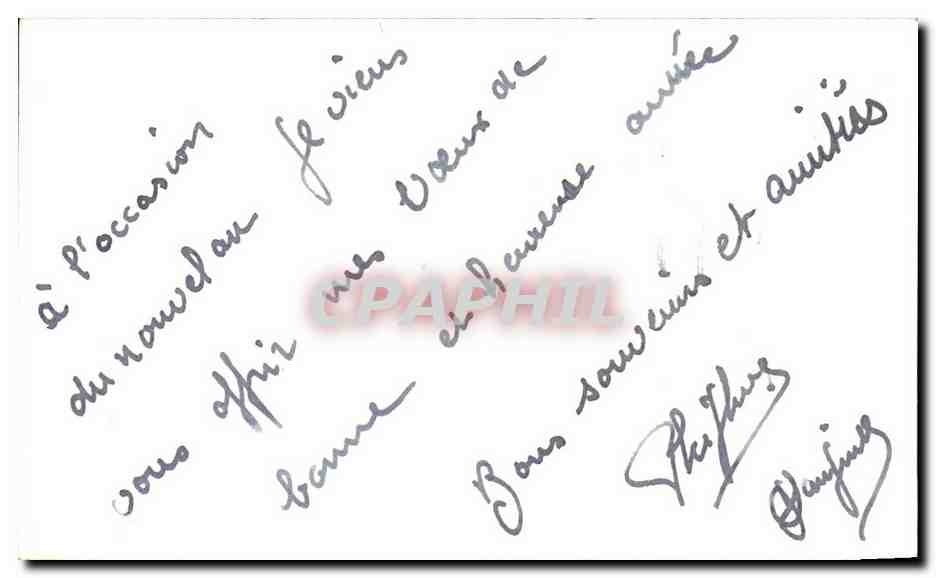 à l'occasion
du nouvel an je viens
vous offrir mes voeux de
bonne et heureuse année
Bons souvenirs et amitiés
CPAPHIL